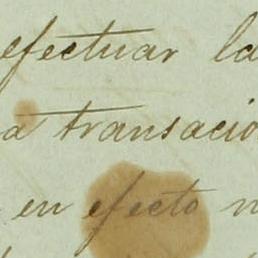 efectuar la
a transacio
en efecto